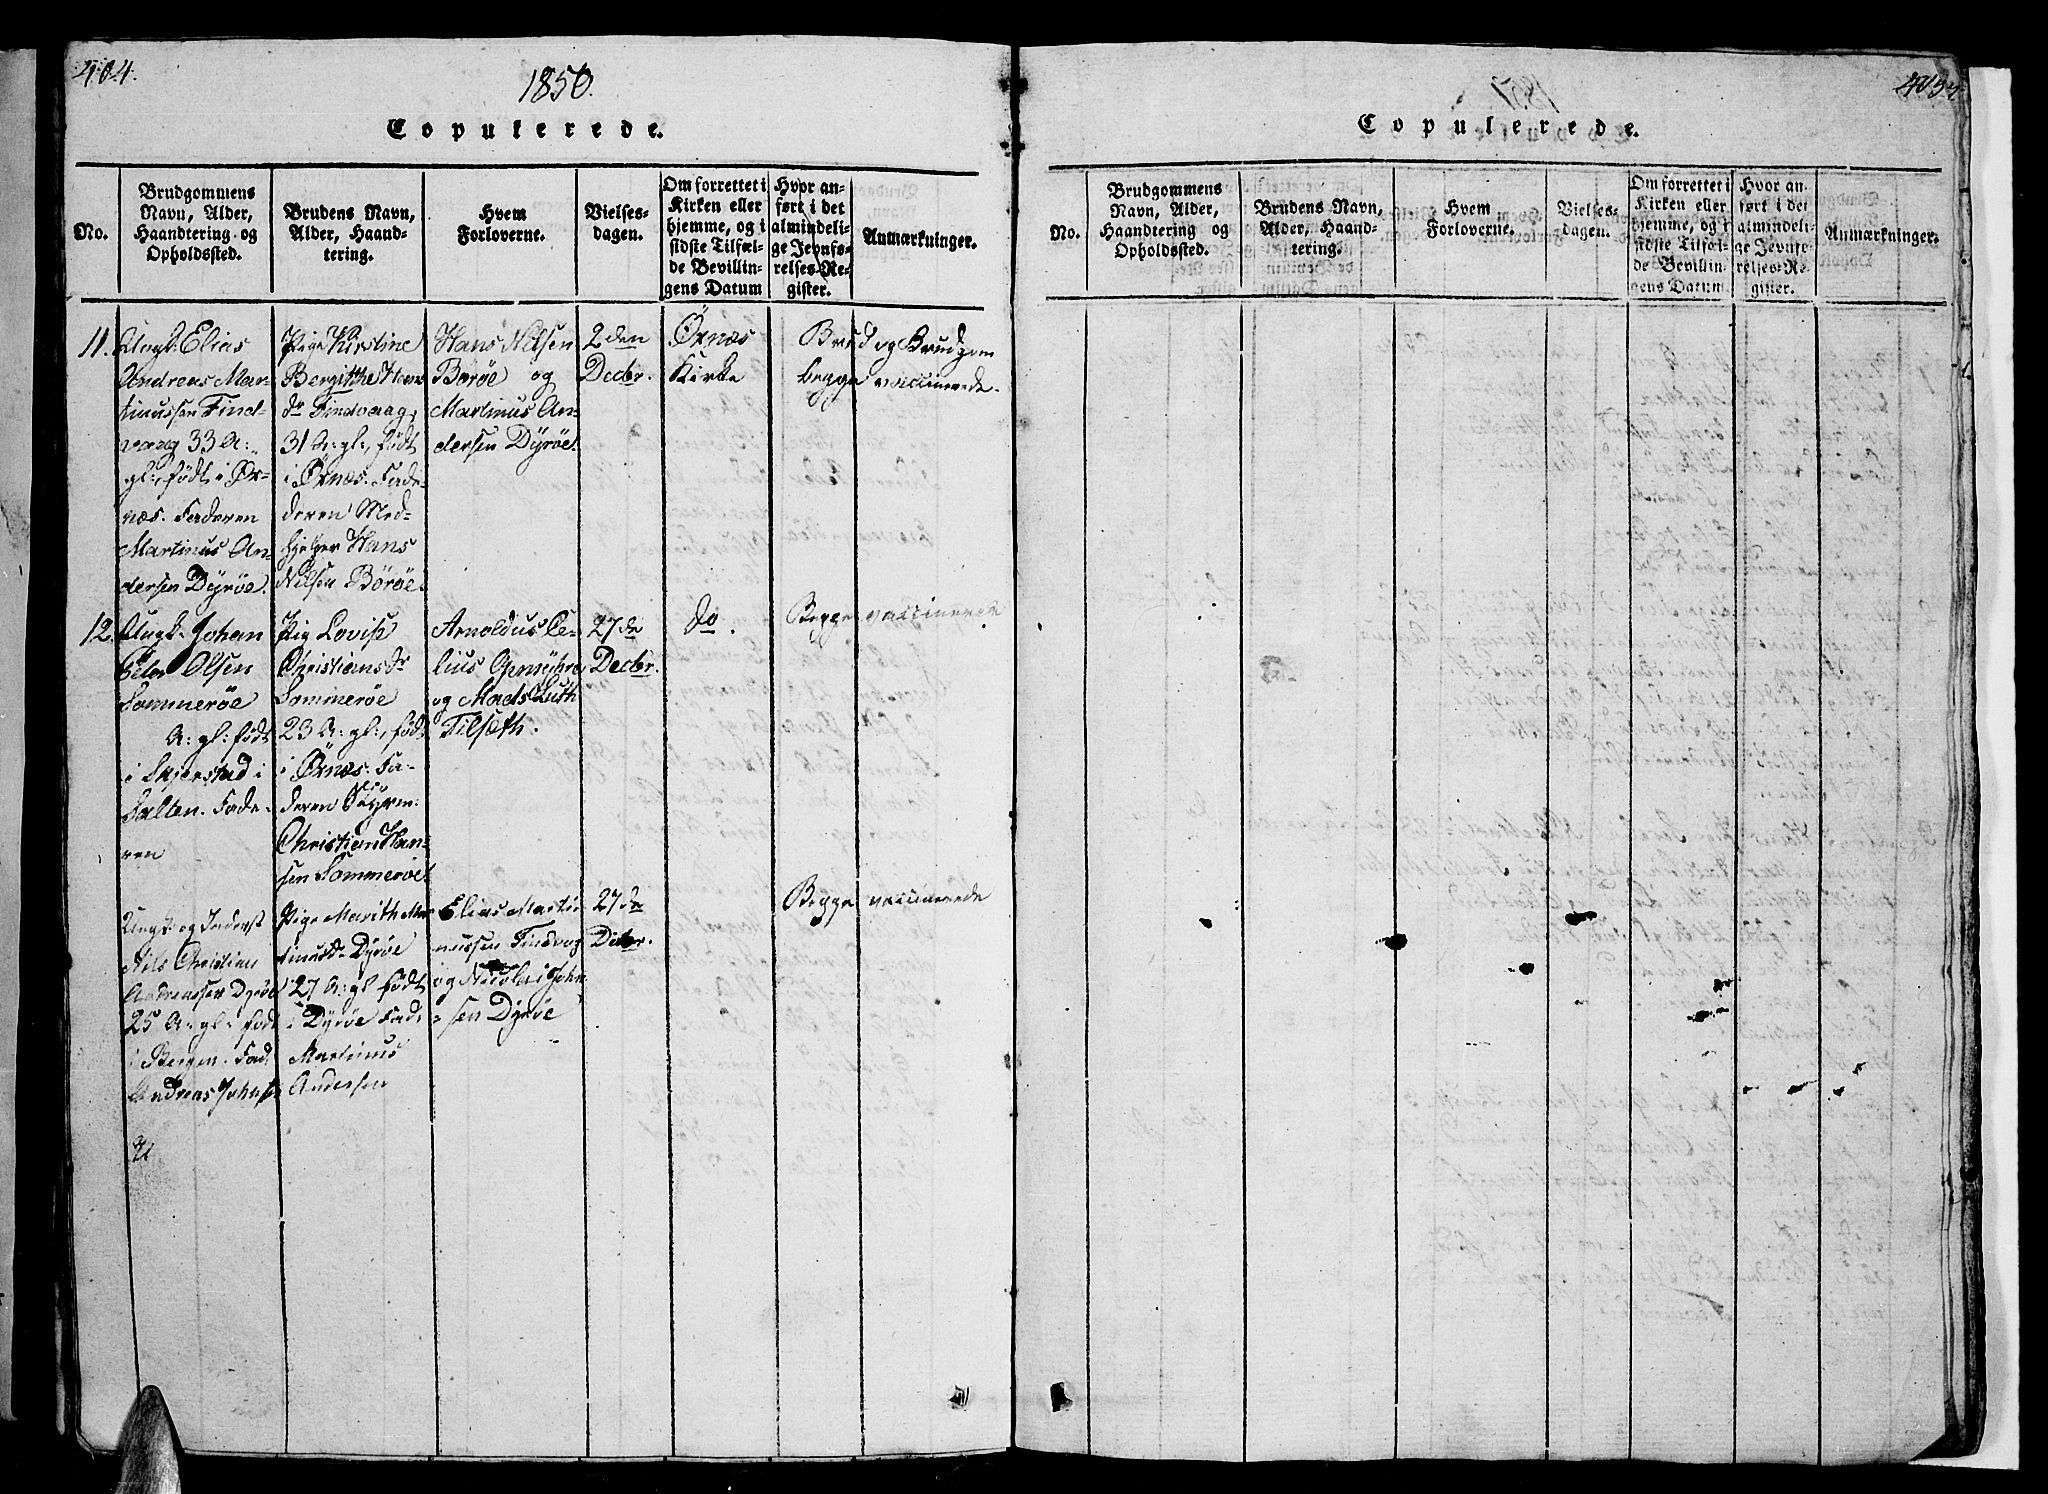 404.
1850.
Copulerede.
No.
Brudgommens
Navn, Alder,
Haandtering og
Opholdssted.
Brudens Navn,
Alder, Haand-
tering.
Hvem
Forloverne.
Vielses-
dagen.
Om forrettet i
Kirken eller
hjemme, og i
sidste Tilfæl-
de Bevillin-
gens Datum
Hvor an-
ført i det
almindeli-
ge Jevnfø-
relses-Re-
gister.
Anmærkninger.
11.
Ungk: Elias
Andreas Mar-
tinussen Find-
vaag 33 A:
gl:, født i Ør-
næs. Faderen
Martinus An-
dersen Dyrøe.
Pige Kirstine
Bergitthe Hans
dr Findvaag,
31 A: gl:, født
i Ørnæs. Fade-
deren Med-
hjelper Hans
Nilsen Börøe.
Hans Nilsen
Börøe og
Martinus An-
dersen Dÿrøe.
2den
Decbr.
Ørnæs
Kirke
Brud og Brudgom
begge vaccinerede.
12.
Ungk: Johan
Peter Olsen
Sommerøe
A: gl: født
i Skjerstad i
Salten. Fade-
ren
Pig Lovise
Christiansdr
Sommerøe
23 A: gl:, født
i Ørnæs. Fa-
deren
Christian Han-
sen Sommerøe.
Arnoldus Ce-
lius
og Mads Luth
Tilseth.
27de
Decbr.
do.
Begge vaccinerede
Ungk: og Inderst
Nils Christian
Andreassen Dyrøe
25 A: gl: født
i Bergen. Fad:
Andreas Johnsen
Pige Marith Mar
tinusdr Dyrøe
27 A: gl født
i Dyrøe Fad:
Martinus
Andersen
Elias Marti-
nussen Findvog
og Nicolai John
sen Dyrøe
27de
Decbr.
Begge vaccinerede
1851
405.
Copulerede.
No.
Brudgommens
Navn, Alder,
Haandtering og
Opholdssted.
Brudens Navn,
Alder, Haand-
tering.
Hvem
Forloverne.
Vielses-
dagen.
Om forrettet i
Kirken eller
hjemme, og i
sidste Tilfæl-
de Bevillin-
gens Datum.
Hvor an-
ført i det
almindeli-
ge Jevnfø-
relses-Re-
gister.
Anmærkninger.